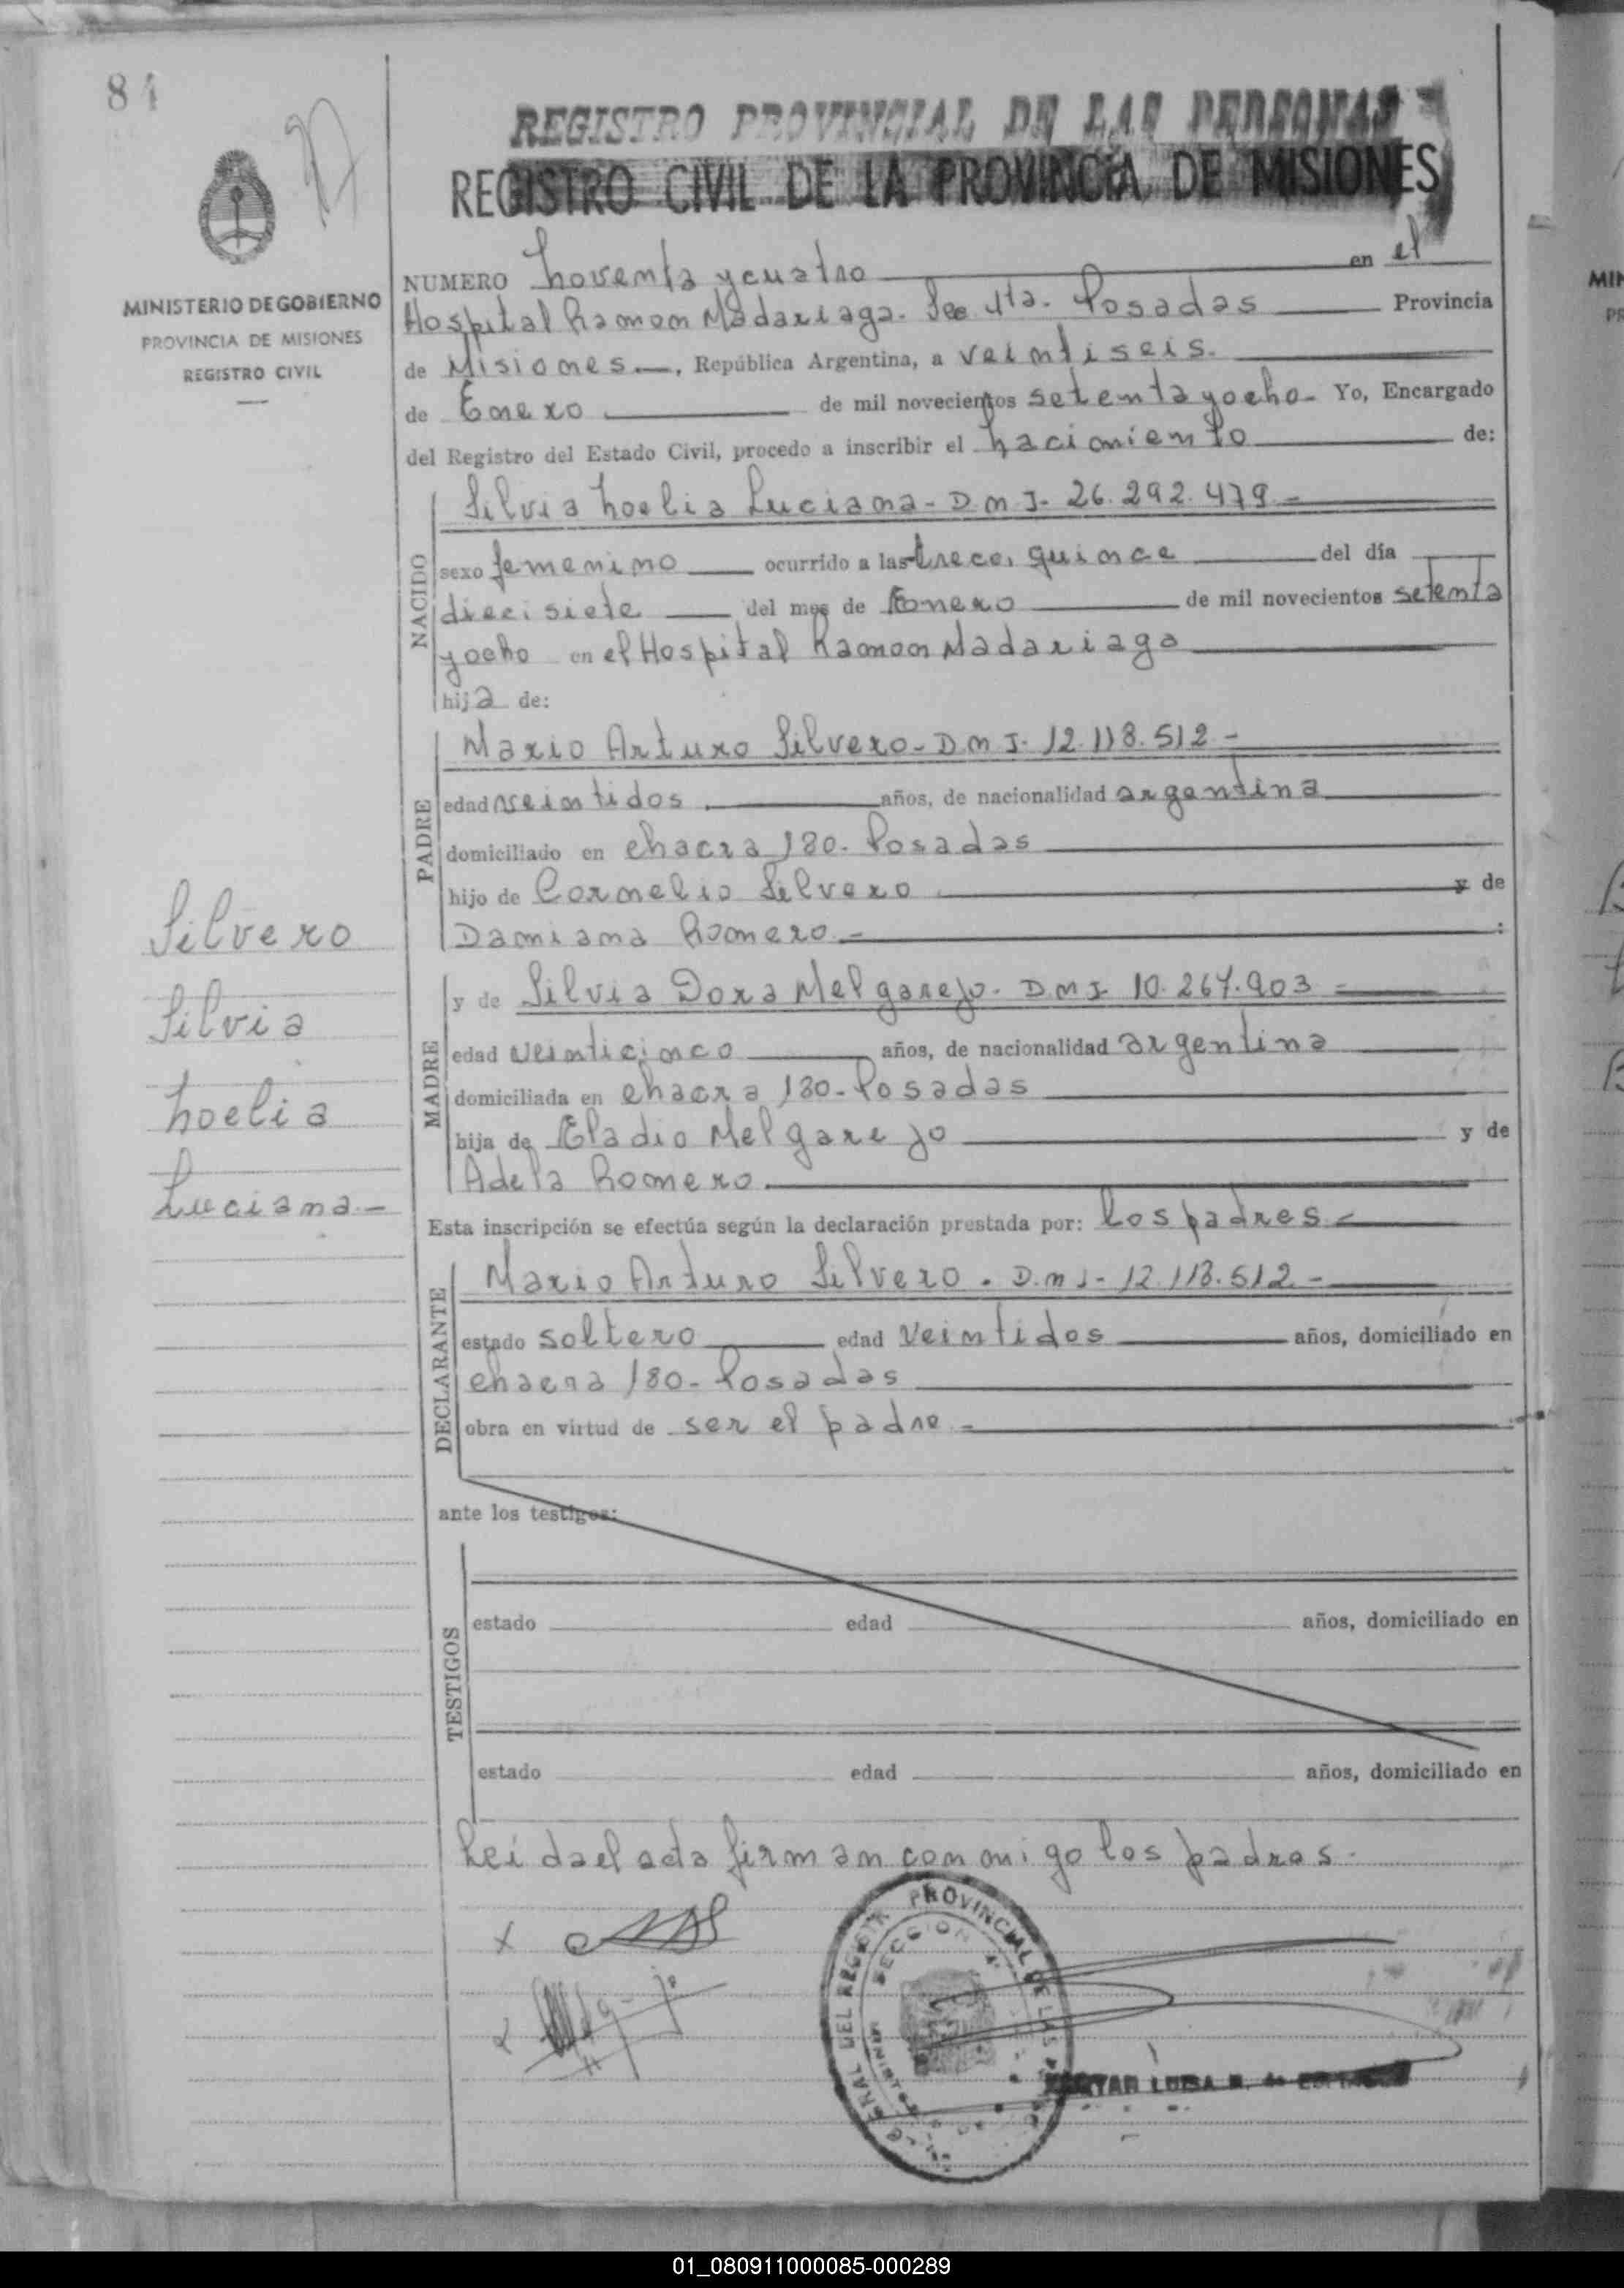 84
REGISTRO PROVINCIAL DE LAS PERSONAS
REGISTRO CIVIL DE LA PROVINCIA DE MISIONES
MINISTERIO DE GOBIERNO
PROVINCIA DE MISIONES
REGISTRO CIVIL
NUMERO Noventa y cuatro en el
Hospital Ramon Madariaga. Sec 4ta. Posadas Provincia
de Misiones, República Argentina, a veintiseis.
de Enero de mil novecientos setenta y ocho. Yo, Encargado
del Registro del Estado Civil, procedo a inscribir el Nacimiento de:
NACIDO
Silvia Noelia Luciana - D.N.I. 26.292.479 -
sexo femenino ocurrido a las trece, quince del día
diecisiete del mes de Enero de mil novecientos setenta
y ocho en el Hospital Ramon Madariaga
hija de:
PADRE
Mario Arturo Silvero - D.N.I. 12.118.512 -
edad veintidos años, de nacionalidad argentina
domiciliado en chacra 180 - Posadas
hijo de Cornelio Silvero y de
Damiana Romero - :
MADRE
y de Silvia Dora Melgarejo - D.N.I. 10.267.903 -
edad veinticinco años, de nacionalidad argentina
domiciliada en chacra 180 - Posadas
hija de Eladio Melgarejo y de
Adela Romero.
Silvero
Silvia
Noelia
Luciana -
Esta inscripción se efectúa según la declaración prestada por: los padres -
DECLARANTE
Mario Arturo Silvero - D.N.I - 12.118.512 -
estado soltero edad veintidos años, domiciliado en
chacra 180 - Posadas
obra en virtud de ser el padre -
ante los testigos:
TESTIGOS
estado edad años, domiciliado en
estado edad años, domiciliado en
Leida el acta firman conmigo los padres.
PROVINCIAL DE LAS
SECCION 4
LUISA
01_080911000085-000289